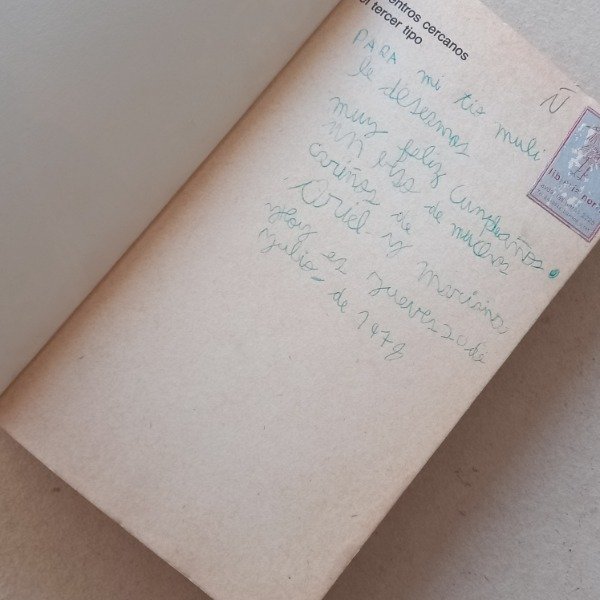 entros cercanos
el tercer tipo
Ñ
PARA mi tio muli
le deseamos
muy feliz cumpleaños.
un beso de muchos
cariños de
Ariel y Marisina
Hoy es Jueves 20 de
Julio de 1978